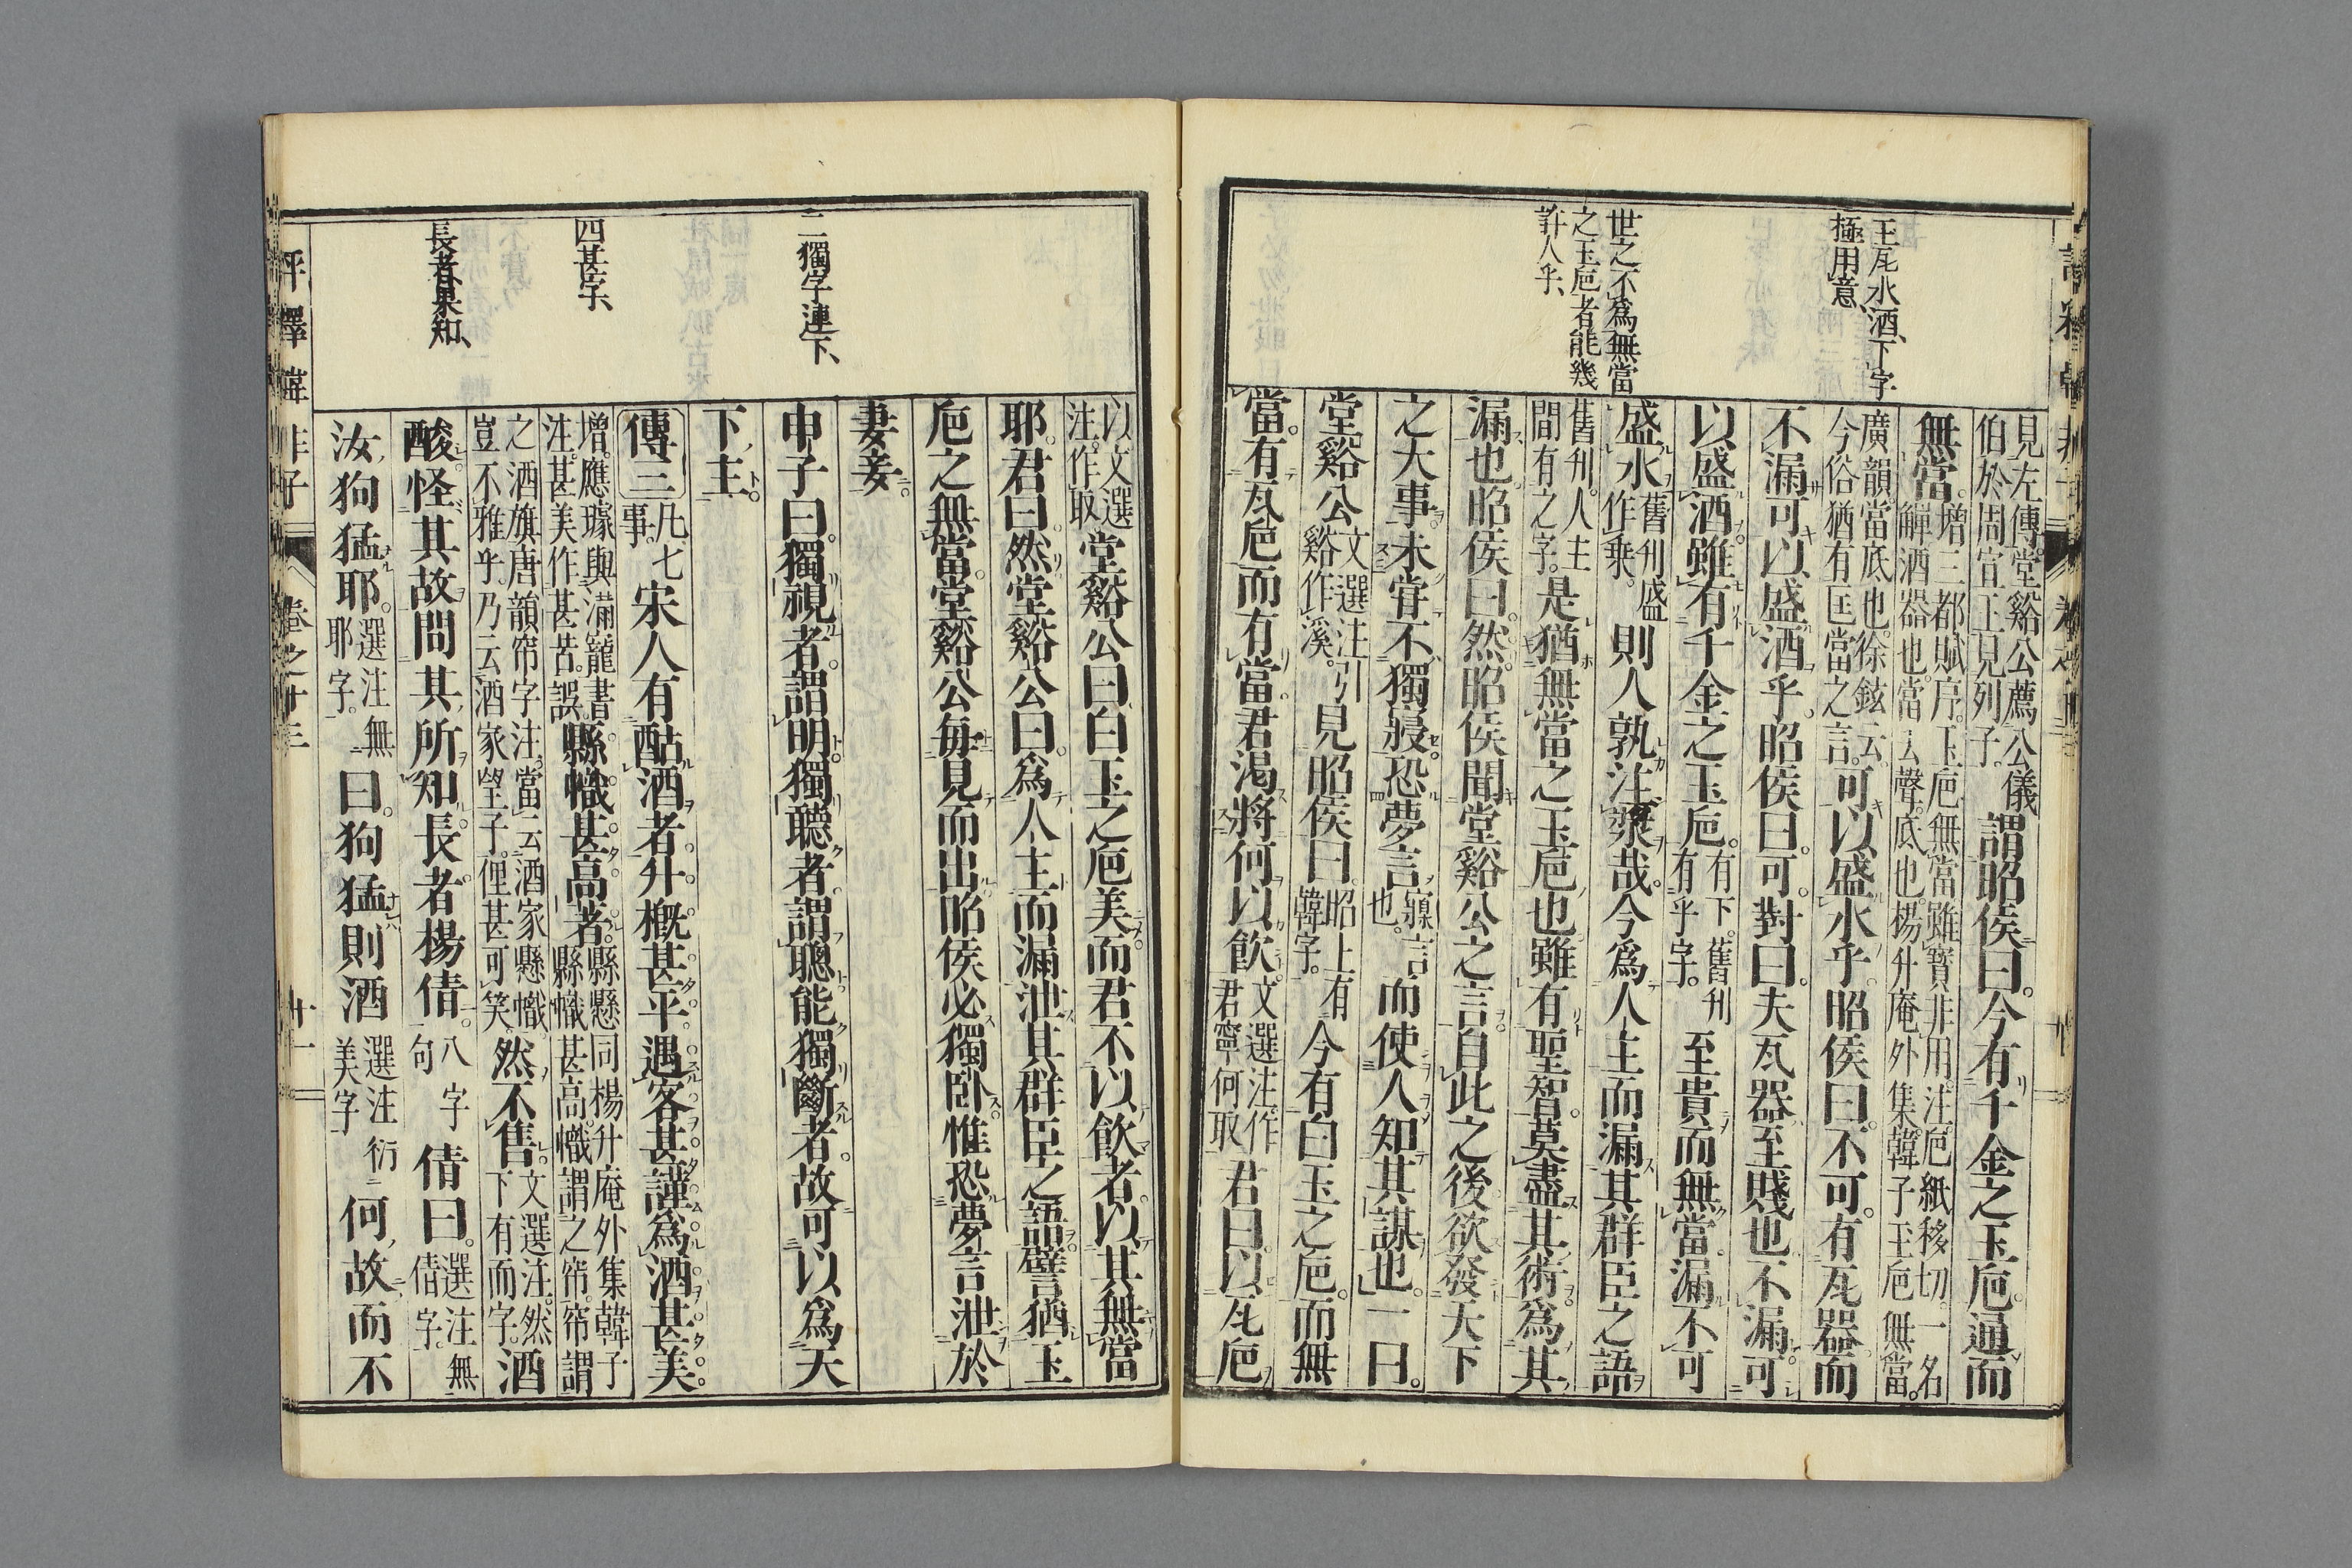 王瓦水酒、下字
極用意、
世之不爲無當
之玉巵者能幾
許人乎、
見左傳。堂谿公薦公儀
伯於周宣王見列子。謂昭侯曰。今有千金之玉巵。通而
無當。增三都賦序。玉巵無當。雖寶非用。注。巵紙移切。一名
觶酒器也。當去聲。底也。楊升庵外集。韓子玉巵無當。
廣韻。當底也。徐鉉云。
今俗猶有匡當之言。可以盛水乎。昭侯曰。不可。有瓦器而
不漏。可以盛酒乎。昭侯曰。可。對曰。夫瓦器至賤也。不漏。可
以盛酒。雖有千金之玉巵。有下。舊刋
有乎字。至貴而無當。漏不可
盛水。舊刋盛
作乘。則人孰注漿哉。今爲人主而漏其群臣之語
舊刋。人主
間有之字。是猶無當之玉巵也。雖有聖智。莫盡其術。爲其
漏也。昭侯曰。然。昭侯聞堂谿公之言。自此之後。欲發天下
之大事。未甞不獨寢。恐夢言寱言
也。而使人知其謀也。一曰。
堂谿公文選注引
谿作溪。見昭侯曰。昭上有
韓字。今有白玉之巵。而無
當。有瓦巵而有當。君渴將何以飮。文選注。作
君寧何取君曰。以瓦巵
以文選
注。作取堂谿公曰。白玉之巵美。而君不以飮者。以其無當
耶。君曰。然。堂谿公曰。爲人主而漏泄其群臣之語。譬猶玉
巵之無當。堂谿公每見而出。昭侯必獨臥。惟恐夢言泄於
妻妾。
申子曰。獨視者。謂明。獨聽者。謂聰。能獨斷者。故可以爲天
下主。
傳三凡七
事。宋人有酤酒者。升槪甚平。遇客甚謹。爲酒甚美。
增。應璩與滿寵書。
注。甚美作甚苦。誤縣幟甚高者。縣懸同楊升庵外集韓子
縣幟甚高。幟謂之帘。帘謂
之酒旗唐韻帘字注。當云酒家懸幟。
豈不雅乎。乃云酒家望子。俚甚可笑。然不售。文選注。然
下有而字。酒
酸。怪其故。問其所知長者楊倩。八字
句倩曰。選注無
倩字。
汝狗猛耶。選注無
耶字。曰。狗猛則酒選注衍
美字何故而不
三獨字連下、
四甚字、
長者果知、
評釋韓非子
卷之十三
十一